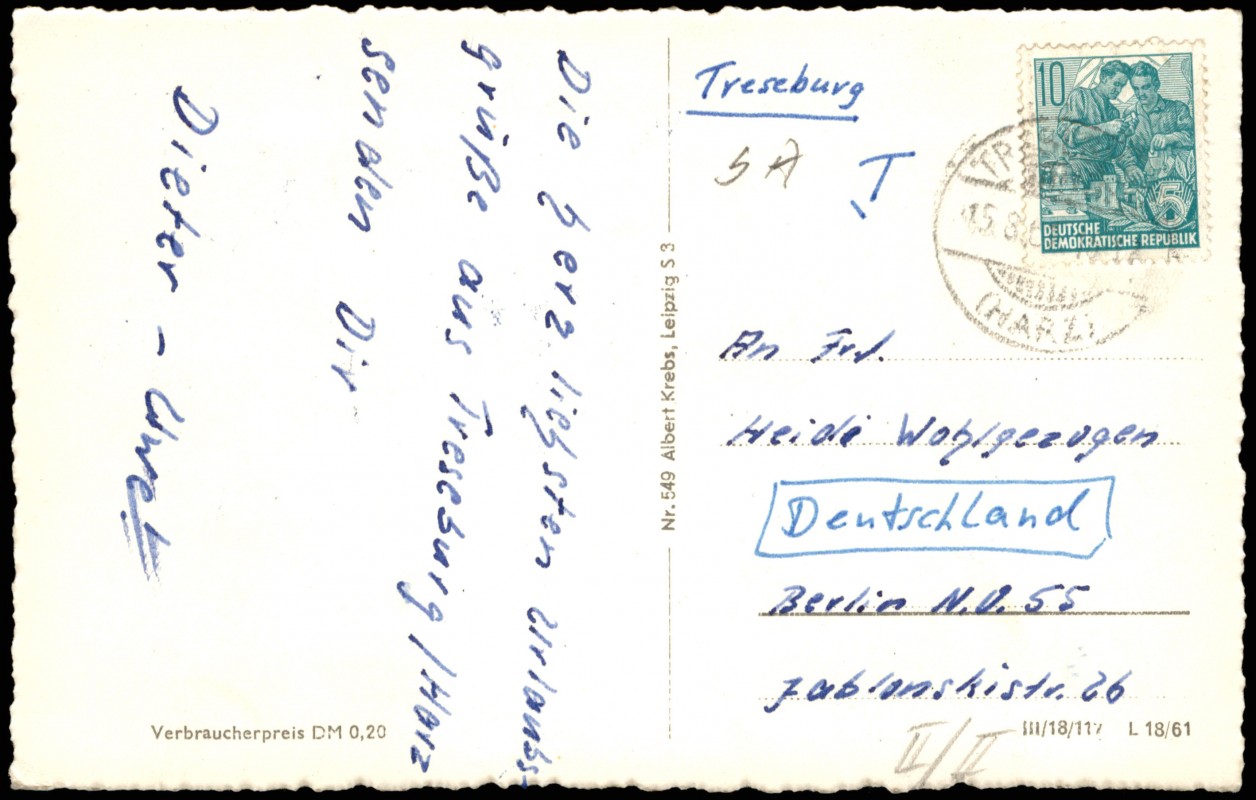 Die herzlichsten Urlaubs-
grüße aus Treseburg/Harz
senden Dir
Dieter - Uwe
Verbraucherpreis DM 0,20
Nr. 549 Albert Krebs, Leipzig S 3
Treseburg
SA
T
10
5
DEUTSCHE
DEMOKRATISCHE REPUBLIK
15.8.6
(HARZ)
An Frl.
Heide Wohlgezogen
Deutschland
Berlin N.O. 55
Jablonskistr. 26
III/18/117 L 18/61
II/II